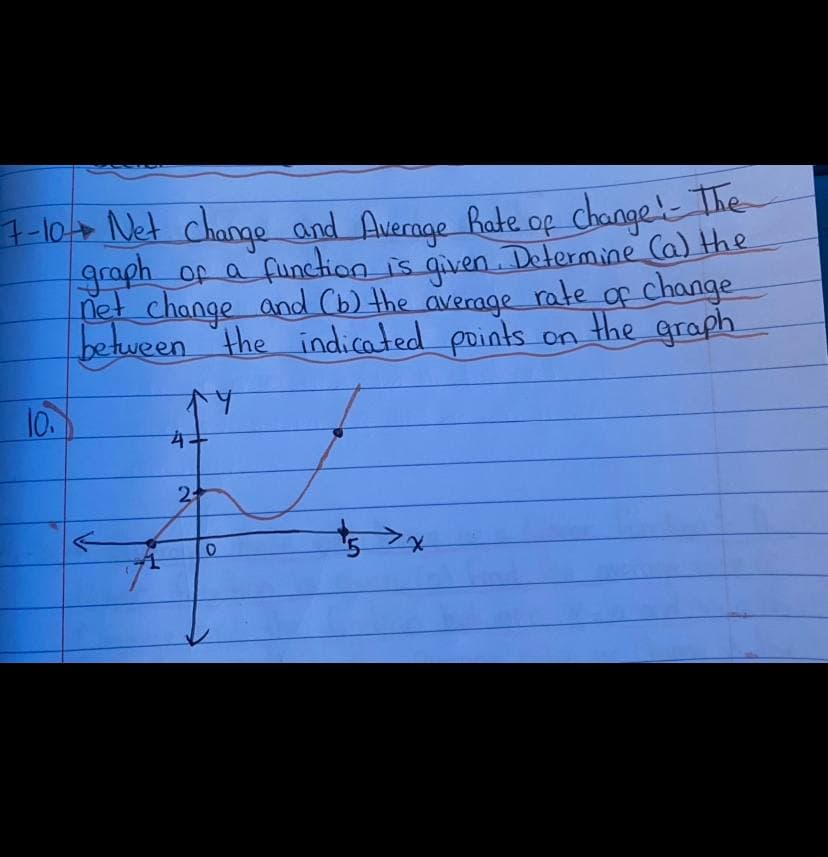 7-10→ Net change and Average Rate of change:- The
graph of a function is given. Determine (a) the
net change and (b) the average rate of change
between the indicated points on the graph
10.)
Y
4
2
-1
0
5
x